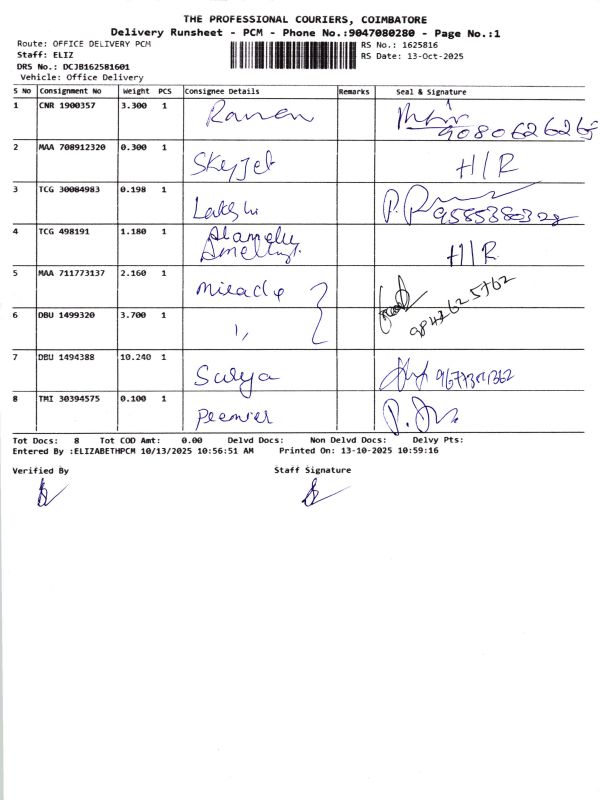 THE PROFESSIONAL COURIERS, COIMBATORE
Delivery Runsheet - PCM - Phone No.:9047080280 - Page No.:1
Route: OFFICE DELIVERY PCM
Staff: ELIZ
DRS No.: DCJB162581601
Vehicle: Office Delivery
RS No.: 1625816
RS Date: 13-Oct-2025
S No Consignment No Weight PCS Consignee Details Remarks Seal & Signature
1 CNR 1900357 3.300 1 Raman
9080626265
2 MAA 708912320 0.300 1 SkyJet H/R
3 TCG 30084983 0.198 1
4 TCG 498191 1.180 1 H/R
5 MAA 711773137 2.160 1 Miracle
6 DBU 1499320 3.700 1 1,
7 DBU 1494388 10.240 1 Surya
8 TMI 30394575 0.100 1 Peemier
Tot Docs: 8 Tot COD Amt: 0.00 Delvd Docs: Non Delvd Docs: Delvy Pts:
Entered By :ELIZABETHPCM 10/13/2025 10:56:51 AM Printed On: 13-10-2025 10:59:16
Verified By Staff Signature